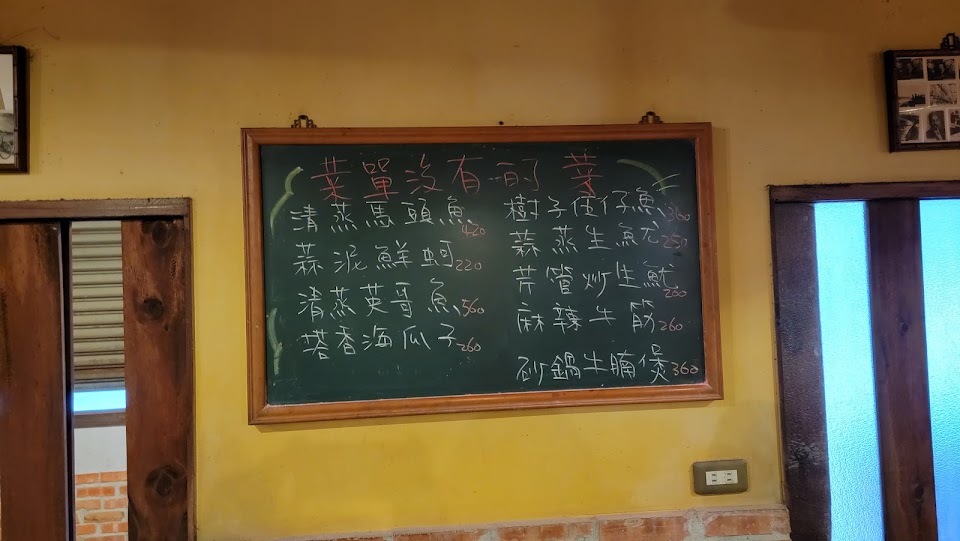 菜單沒有的菜
清蒸馬頭魚 420
蒜泥鮮蚵 220
清蒸英哥魚 560
塔香海瓜子 260
樹子佰仔魚 360
蒜蒸生魷 250
芹管炒生魷 200
麻辣牛筋 260
砂鍋牛腩煲 360